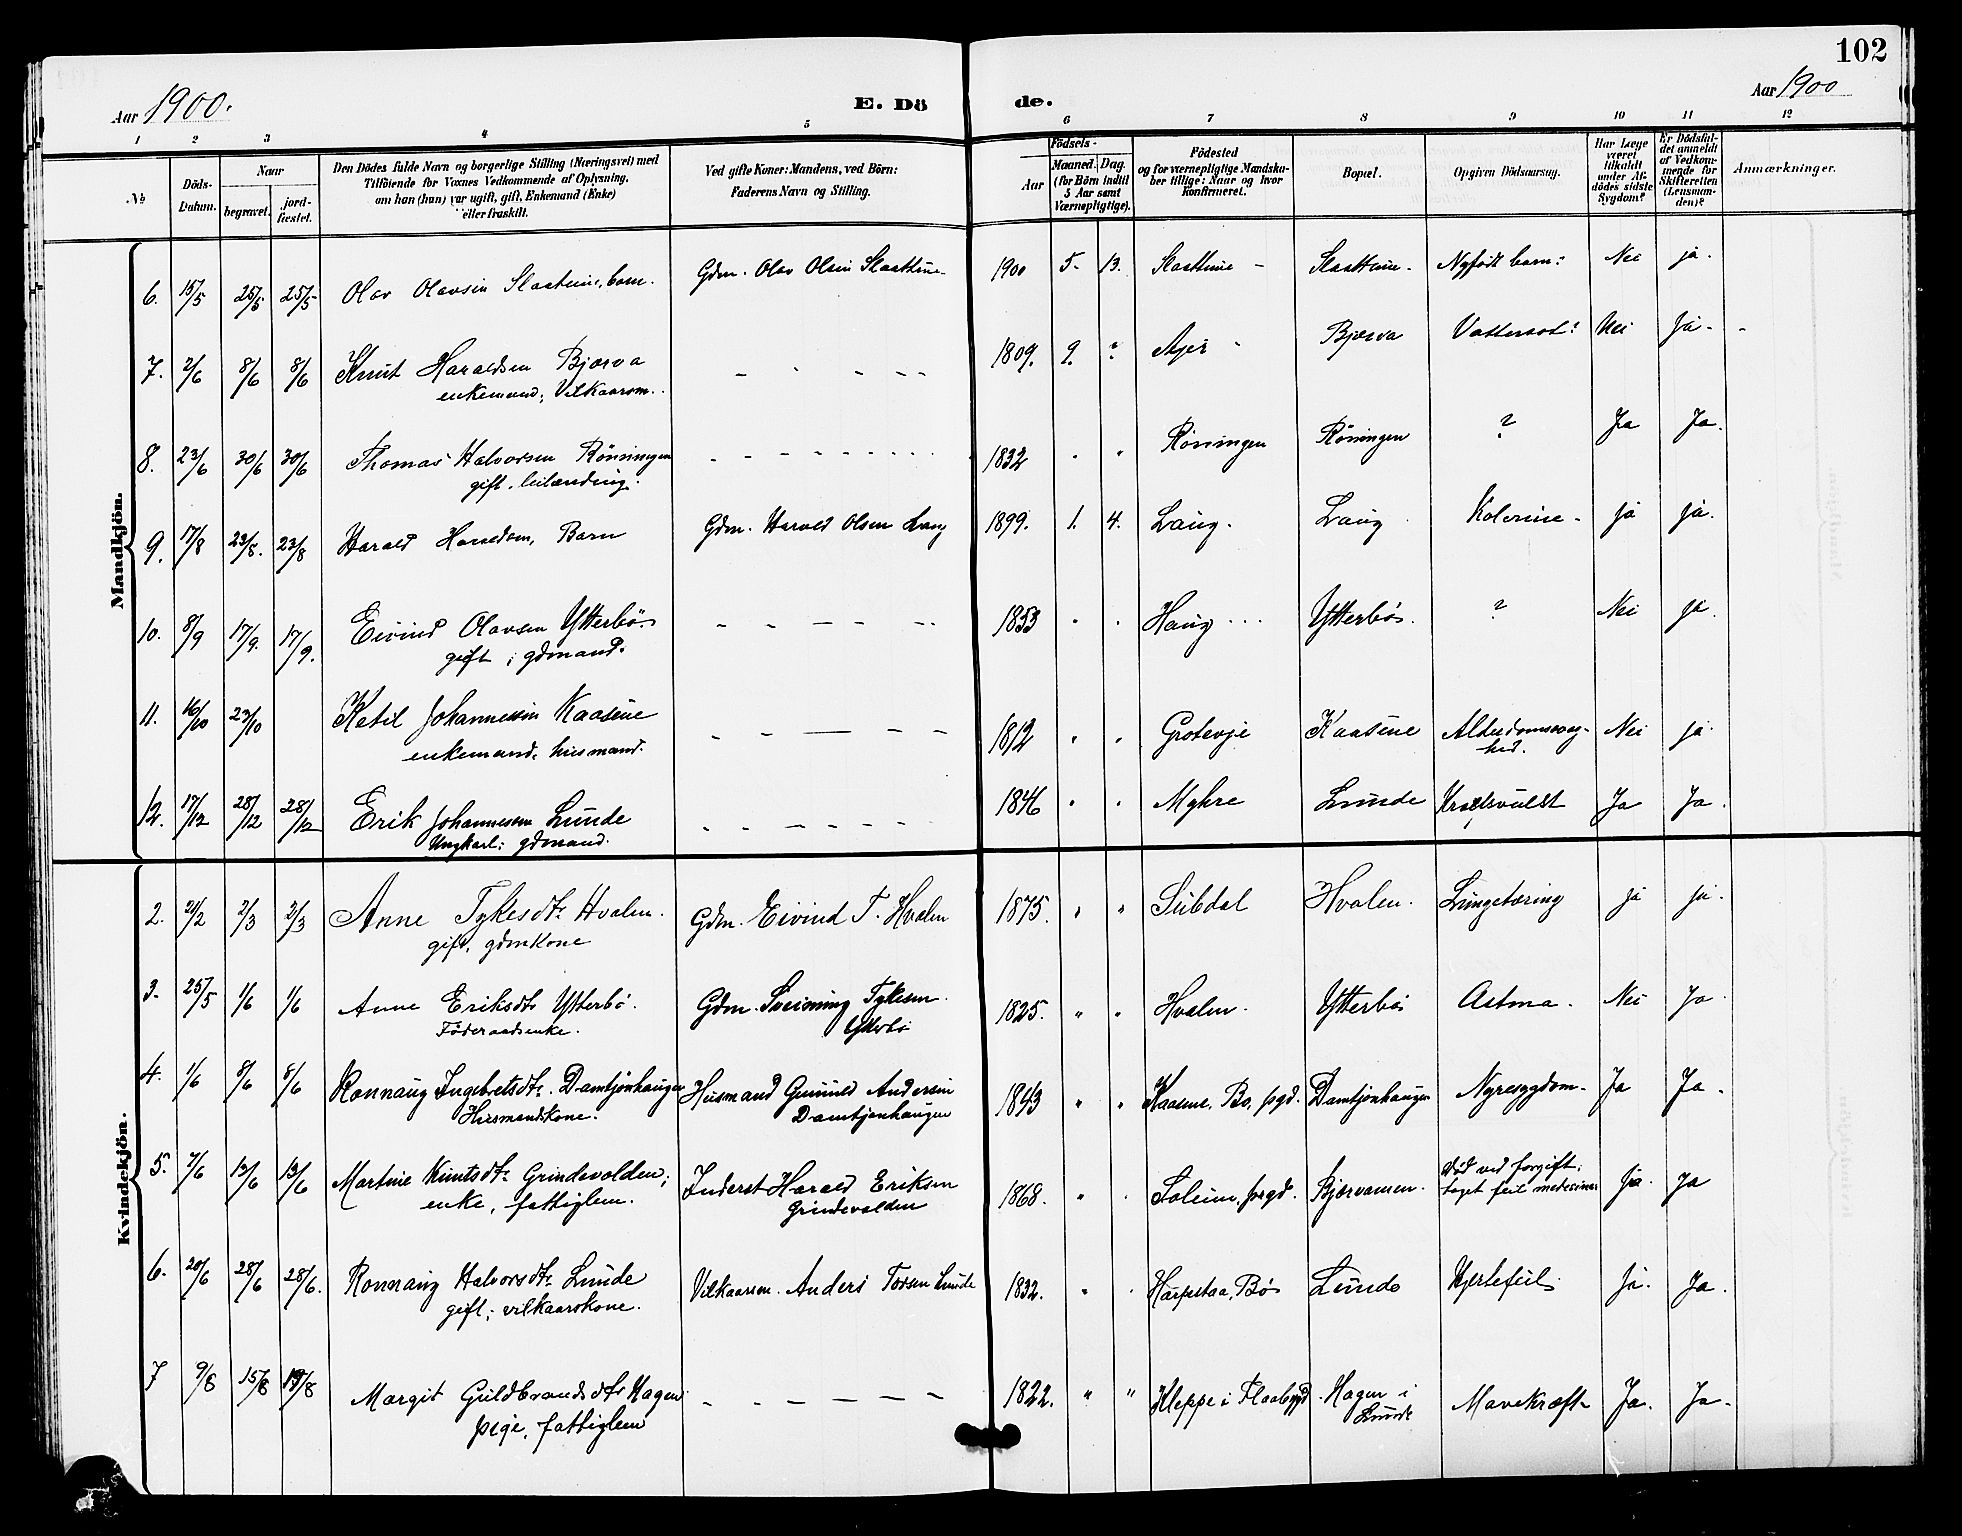 102
Aar 1900.
E. Dö
de.
Aar 1900
1 2 3 4 5 6 7 8 9 10 11 12
No
Döds-Datum.
Naar
begravet.
jord-fæstet.
Den Dödes fulde Navn og borgerlige Stilling (Næringsvei) med
Tilföiende for Voxnes Vedkommende af Oplysning,
om han (hun) var ugift, gift, Enkemand (Enke)
eller fraskilt.
Ved gifte Koner: Mandens, ved Börn:
Faderens Navn og Stilling.
Födsels-
Aar
Maaned. Dag.
(for Börn indtil
5 Aar samt
Værnepligtige).
Födested
og for værnepligtige Mandska-
ber tillige: Naar og hvor
konfirmeret.
Bopæl.
Opgiven Dödsaarsag.
Har Læge
været
tilkaldt
under Af-
dödes sidste
Sygdom?
Er Dödsfal-
det anmeldt
af Vedkom-
mende for
Skifteretten
(Lensman-
den)?
Anmærkninger.
Mandkjön.
6. 15/5 25/5 25/5 Olav Olavsen Slaattene, barn. Gdm. Olav Olsen Slaattene 1900 5. 13. Slaattene - Slaattene. Nyfödt barn: Nei ja.
7. 2/6 8/6 8/6 Knut Haraldsen Bjørva 1809. 9. ? Ajer Bjørva Vattersot? Nei Ja.
enkemand, Vilkaarsm.
8. 23/6 30/6 30/6 Thomas Halvorsen Rönningen 1832 " " Rönningen Röningen ? Ja Ja.
gift. leilænding.
9. 17/8 23/8. 23/8 Harald Haraldsen, Barn Gdm. Harald Olsen Laug 1899. 1. 4. Laug. Laug Kolerine. ja ja.
10. 8/9 17/9. 17/9. Eivind Olavsen Ytterbö. 1853 " " Haug Ytterbös. ? Nei ja.
gift; gdmand.
11. 16/10 23/10 Ketil Johannessen Kaasene 1812 " " Grotevje Kaasene Alderdomssvag-
hed. Nei ja.
enkemand, husmand.
12. 17/12 28/12 28/12 Erik Johannessen Lunde 1846 " " Myhre Lunde Kræftsvulst Ja Ja.
Ungkarl; gdmand.
Kvindekjön.
2. 21/2 2/3 2/3 Anne Tykesdtr Hvalen. Gdm. Eivind T. Hvalen 1875. " " Subdal Hvalen. Lungetæring ja ja.
gift, gdmkone
3. 25/5 1/6 1/6 Anne Eriksdtr Ytterbö. Gdm. Sveinung Tykesen.
Ytterbö 1825. " " Hvalen. Ytterbö Astma. Nei Ja.
Föderaadsenke.
4. 1/6 8/6 8/6 Ronnaug Ingebretsdtr. Damtjönhaugen Husmand Gunuld Andersen
Damtjonhaugen 1843 " " Kaasene, Bö. pgd. Damtjönhaugen Nyresygdom. Ja Ja.
Husmandskone.
5. 7/6 13/6 13/6 Martine Knutsdtr Grindevolden; Inderst Harald Eriksen
Grindevolden 1868. " " Soleim, prgd. Bjørvamoen. Död ved forgift;
taget feil medesiner Ja. Ja
enke, fattiglem.
6. 20/6 28/6 28/6. Ronnaug Halvorsdtr Lunde Vilkaarsm. Anders Torsen Lunde 1832. " " Harpetaa, Bö Lunde Hjertefeil. Ja. Ja.
gift; vilkaarskone.
7 9/8 15/8 15/8 Margit Guldbrandsdtr Hagen 1822. " " Kleppe i Flaabygd Hagen i
Lunde Mavekræft. Ja. Ja.
pige, fattiglem